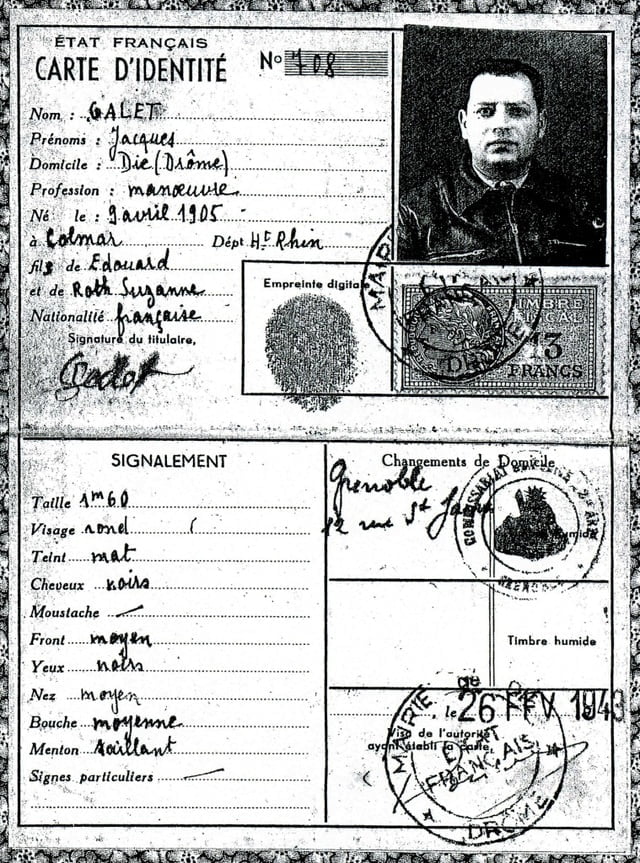 ÉTAT FRANÇAIS
CARTE D'IDENTITÉ
N° 708
Nom : GALET
Prénoms : Jacques
Domicile : Die (Drôme)
Profession : manœuvre
Né le : 9 avril 1905
à Colmar Dépt Ht Rhin
fils de Edouard
et de Roth Suzanne
Nationalité française
Signature du titulaire,
Empreinte digitale
MAIRIE
DRÔME
TIMBRE
FISCAL
13
FRANCS
SIGNALEMENT
Taille 1m60
Visage rond
Teint mat
Cheveux noirs
Moustache
Front moyen
Yeux noirs
Nez moyen
Bouche moyenne
Menton saillant
Signes particuliers
Changements de Domicile
Grenoble
12 rue St
COMMISSARIAT
GRENOBLE
humide
Timbre humide
le 26 FEV 1943
Visa de l'autorité
ayant établi la carte,
MAIRIE de
ÉTAT
FRANÇAIS
DRÔME